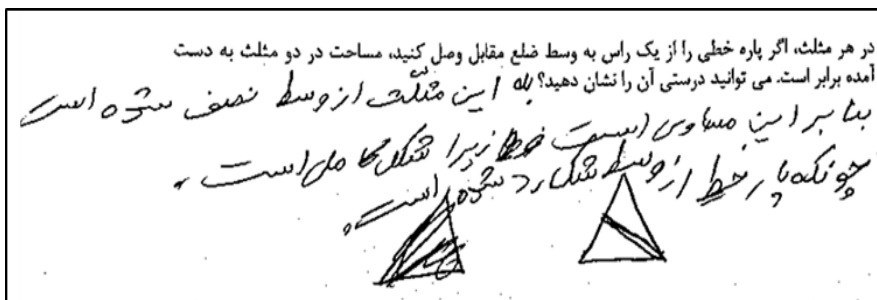 در هر مثلث، اگر پاره خطی را از یک راس به وسط ضلع مقابل وصل کنید، مساحت در دو مثلث به دست
آمده برابر است. می توانید درستی آن را نشان دهید؟ بله این مثلث از وسط نصف شده است
بنا بر این مساوی است زیرا شکل کامل است.
چونکه پاره خط از وسط شکل رد شده است.